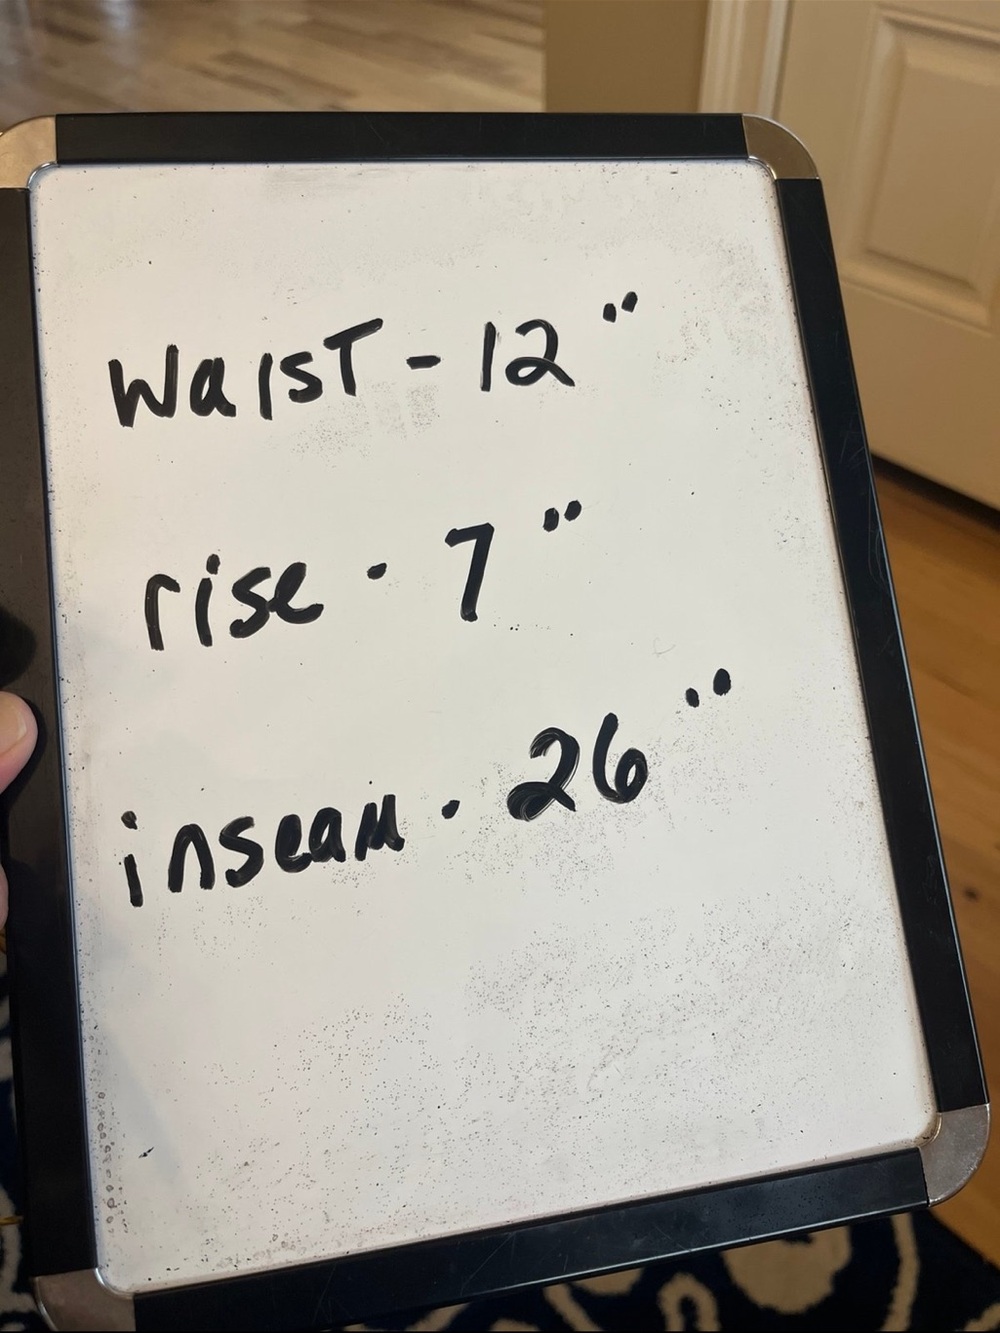 WaIsT - 12 "
rise . 7 "
inseam . 26 "